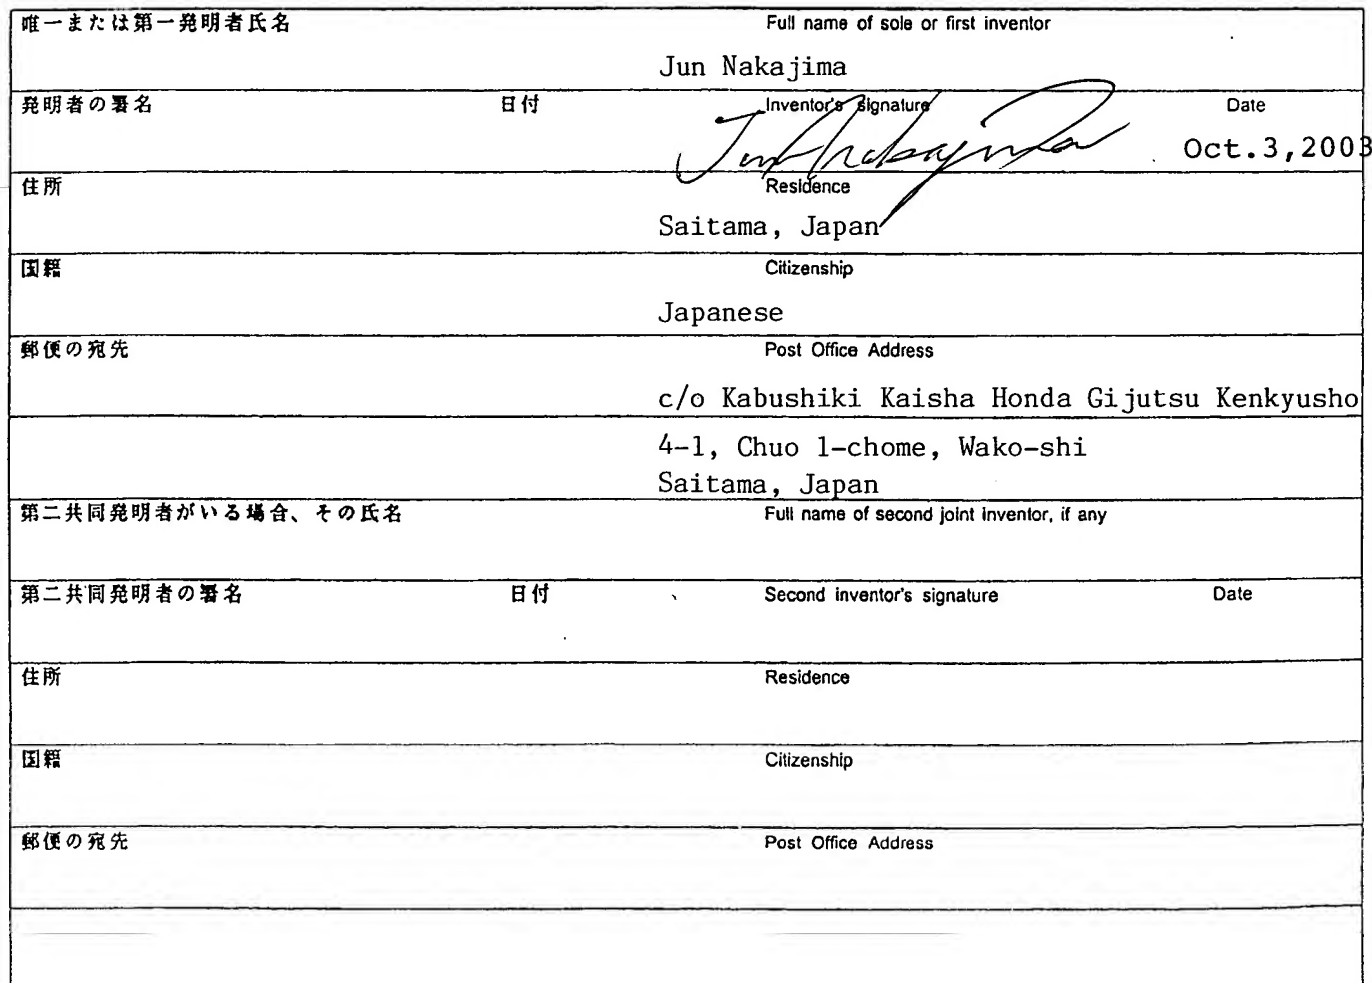 唯一または第一発明者氏名 Full name of sole or first inventor
Jun Nakajima
発明者の署名 日付 Inventor's signature Date
Jun Nakajima Oct.3,2003
住所 Residence
Saitama, Japan
国籍 Citizenship
Japanese
郵便の宛先 Post Office Address
c/o Kabushiki Kaisha Honda Gijutsu Kenkyusho
4-1, Chuo 1-chome, Wako-shi
Saitama, Japan
第二共同発明者がいる場合、その氏名 Full name of second joint inventor, if any
第二共同発明者の署名 日付 Second inventor's signature Date
住所 Residence
国籍 Citizenship
郵便の宛先 Post Office Address